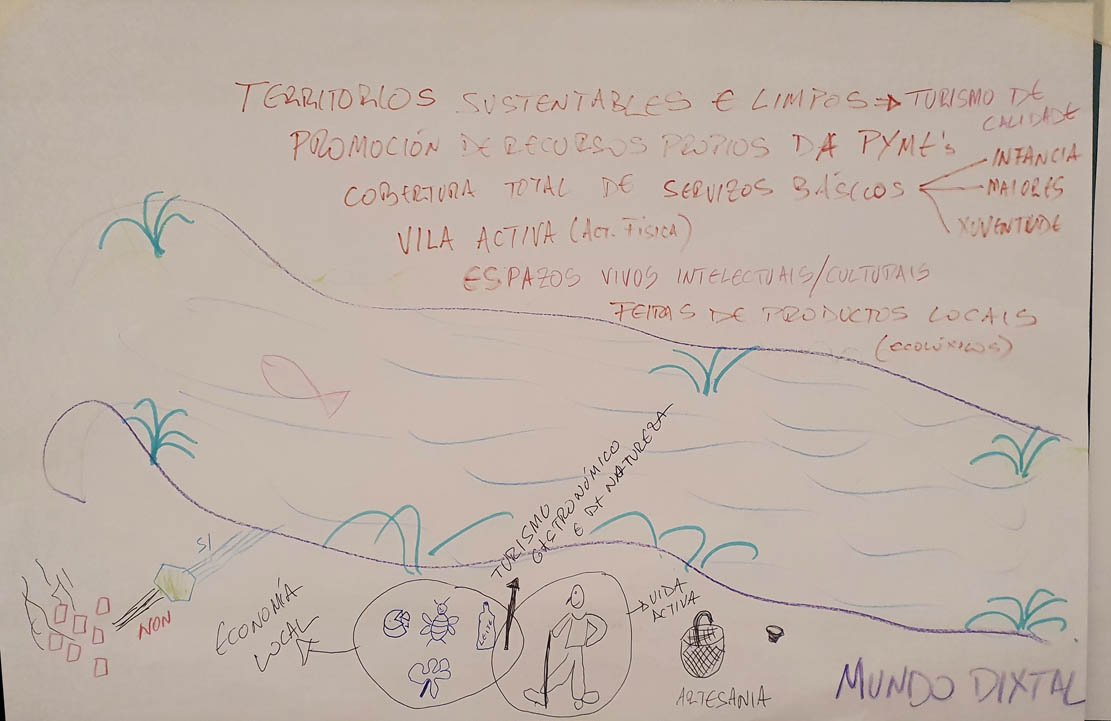 TERRITORIOS SUSTENTABLES E LIMPOS → TURISMO DE
CALIDADE
PROMOCIÓN DE RECURSOS PROPIOS DA PYME's
COBERTURA TOTAL DE SERVIZOS BÁSICOS
INFANCIA
MAIORES
XUVENTUDE
VILA ACTIVA (ACT. FÍSICA)
ESPAZOS VIVOS INTELECTUAIS/CULTURAIS
FEIRAS DE PRODUCTOS LOCAIS
(ECOLÓXICOS)
TURISMO
GASTRONÓMICO
E DA NATUREZA
SI
NON
ECONOMÍA
LOCAL
VIDA
ACTIVA
ARTESANIA
MUNDO DIXTAL